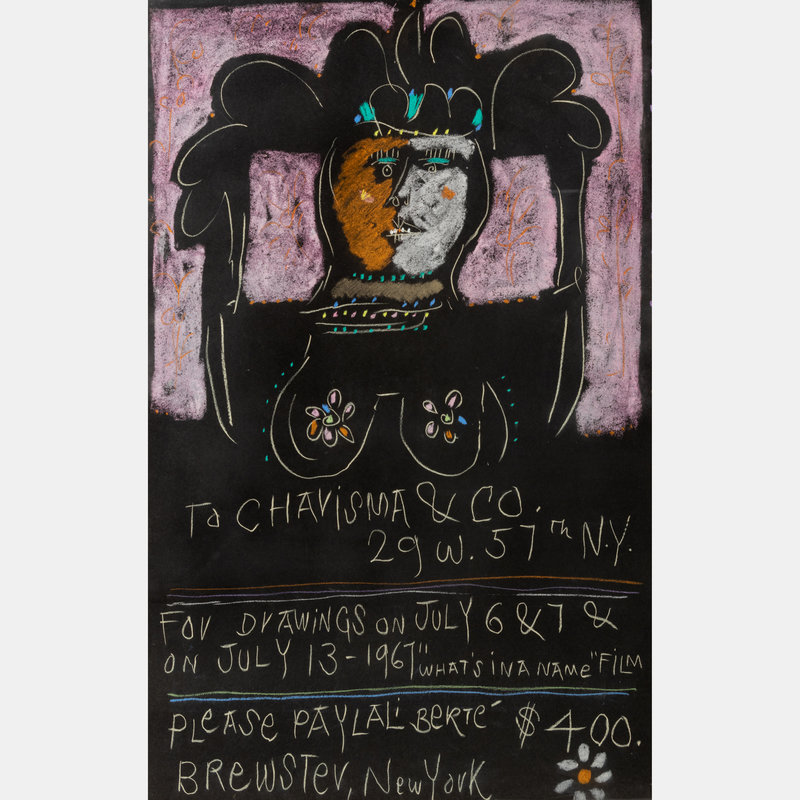 To CHArisMA & CO.
29 W. 57 TH N.Y.
FOr DrAWiNGS ON JULY 6 & 7 &
ON JULY 13 - 1967 "WHAT'S IN A NAME" FiLM
PLEASE PAY LALiBERTÉ $400.
BREWSTEr, NEW YOrK